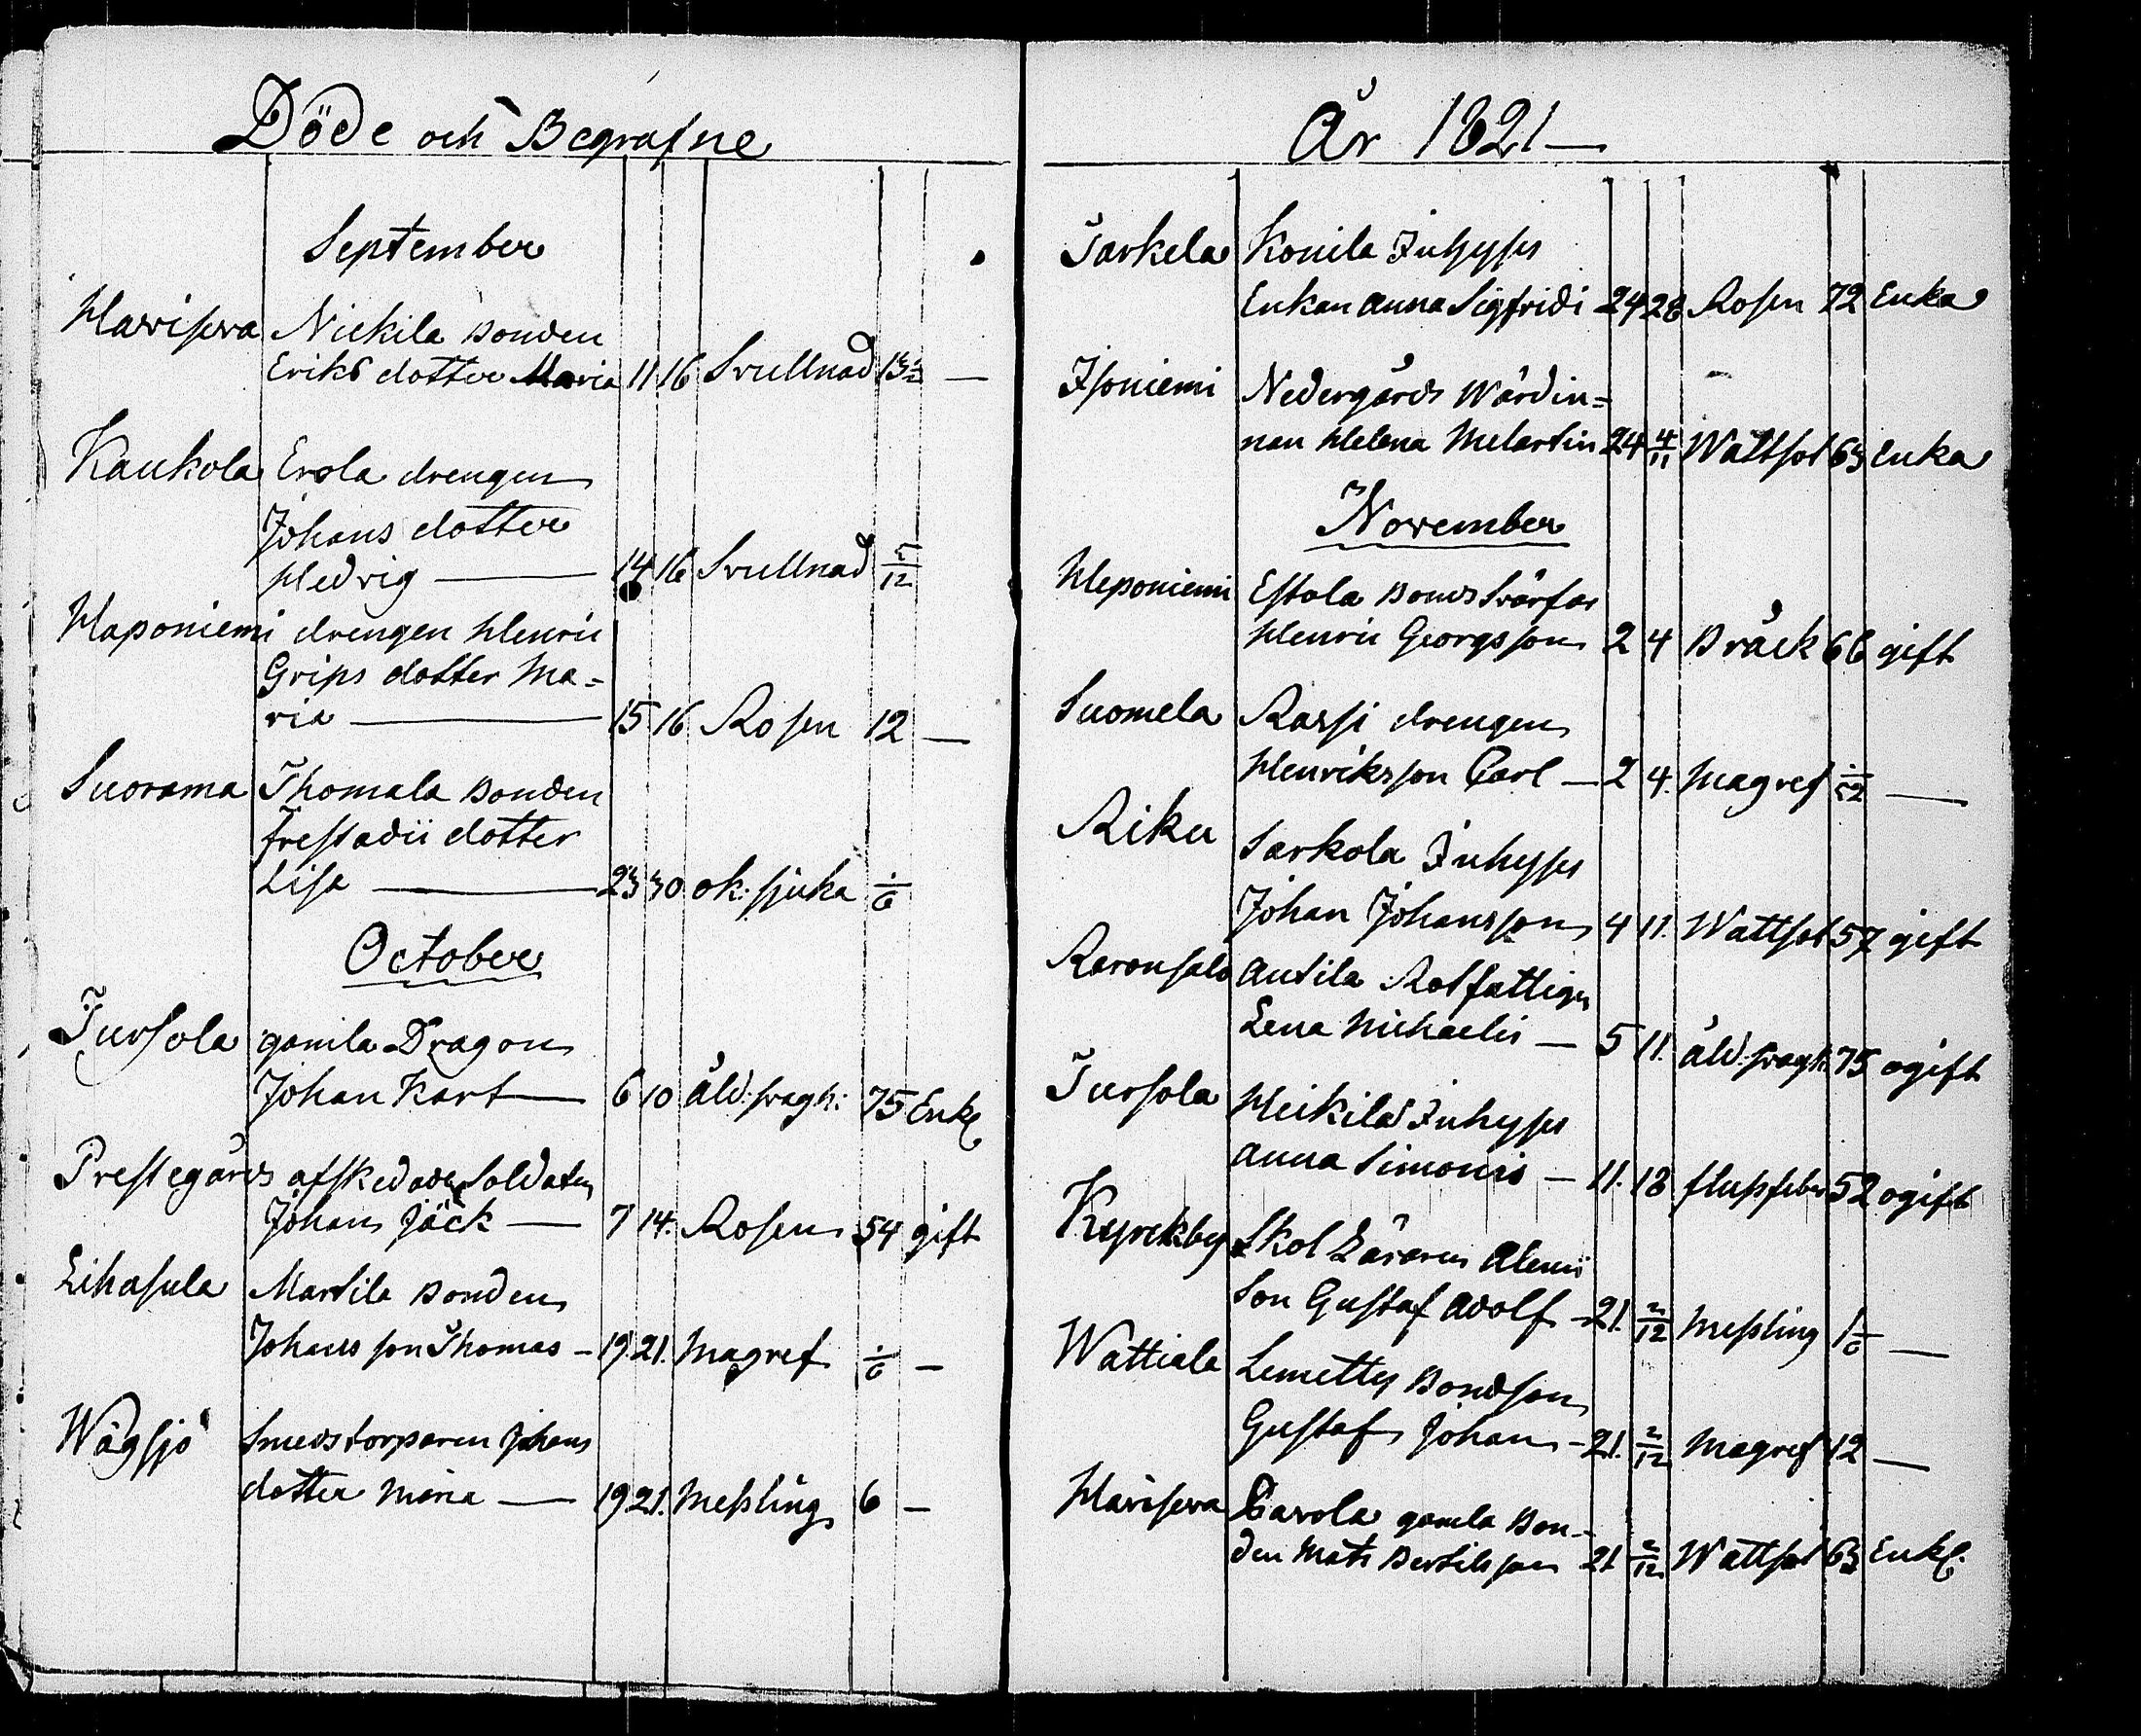 Döde och Begrafne
September
Harisева Nickila Bonden
Eriks dotter Maria 11 16 Svullnad 13½ —
Kaukola Erola drengen
Johans dotter
Hedvig — 14 16 Svullnad 5/12
Haponiemi drengen Henric
Grips dotter Ma=
ria — 15 16 Rosen 12 —
Suorama Thomala Bonden
Lisa — 23 30 ok: sjuka ·/6
October
Tursola gamla Dragon
Johan Kart — 6 10 åld: svagh: 75 Enkl
Prestegårds afskedade Soldaten
Johan Jäck — 7 14. Rosen 54 gift
Lihasula Martila Bonden
Johans son Thomas — 19 21. Magref ·/6 —
Wågsjö Smedstorparen Johans
dotter Maria — 19 21. Messling 6 —
År 1821 —
Tarkela Konila Inhyses
Enkan Anna Sigfridi 24 28 Rosen 72 Enka
Isoniemi Nedergårds Wärdin=
nan Helena Melartin 24 4/11 Wattsot 63 Enka
November
Heponiemi Estola Bonds Svärfar
Henric Georgsson 2 4 Bråck 66 gift
Suomela Rassi drengen
Henriksson Carl — 2 4. Magref —
Riku Sarkola Inhyses
Johan Johansson 4 11. Wattsot 57 gift
Ronsala Antila Rotfattigen
Lena Michaelis — 5 11. åld: svagh: 75 ogift
Tursola Heikilä Inhyses
Anna Simonis — 11. 18 flussfeber 52 ogift
Kyrckby Skol Läraren Alenii
Son Gustaf Adolf — 21. 2/12 Messling 1 ·/6 —
Wattiala Lemetty Bondson
Gustaf Johan — 21. 2/12 Magref 12 —
Eavola gamla Bon-
den Mats Bertilsson 21 2/12 Wattsot 63 Enkl.